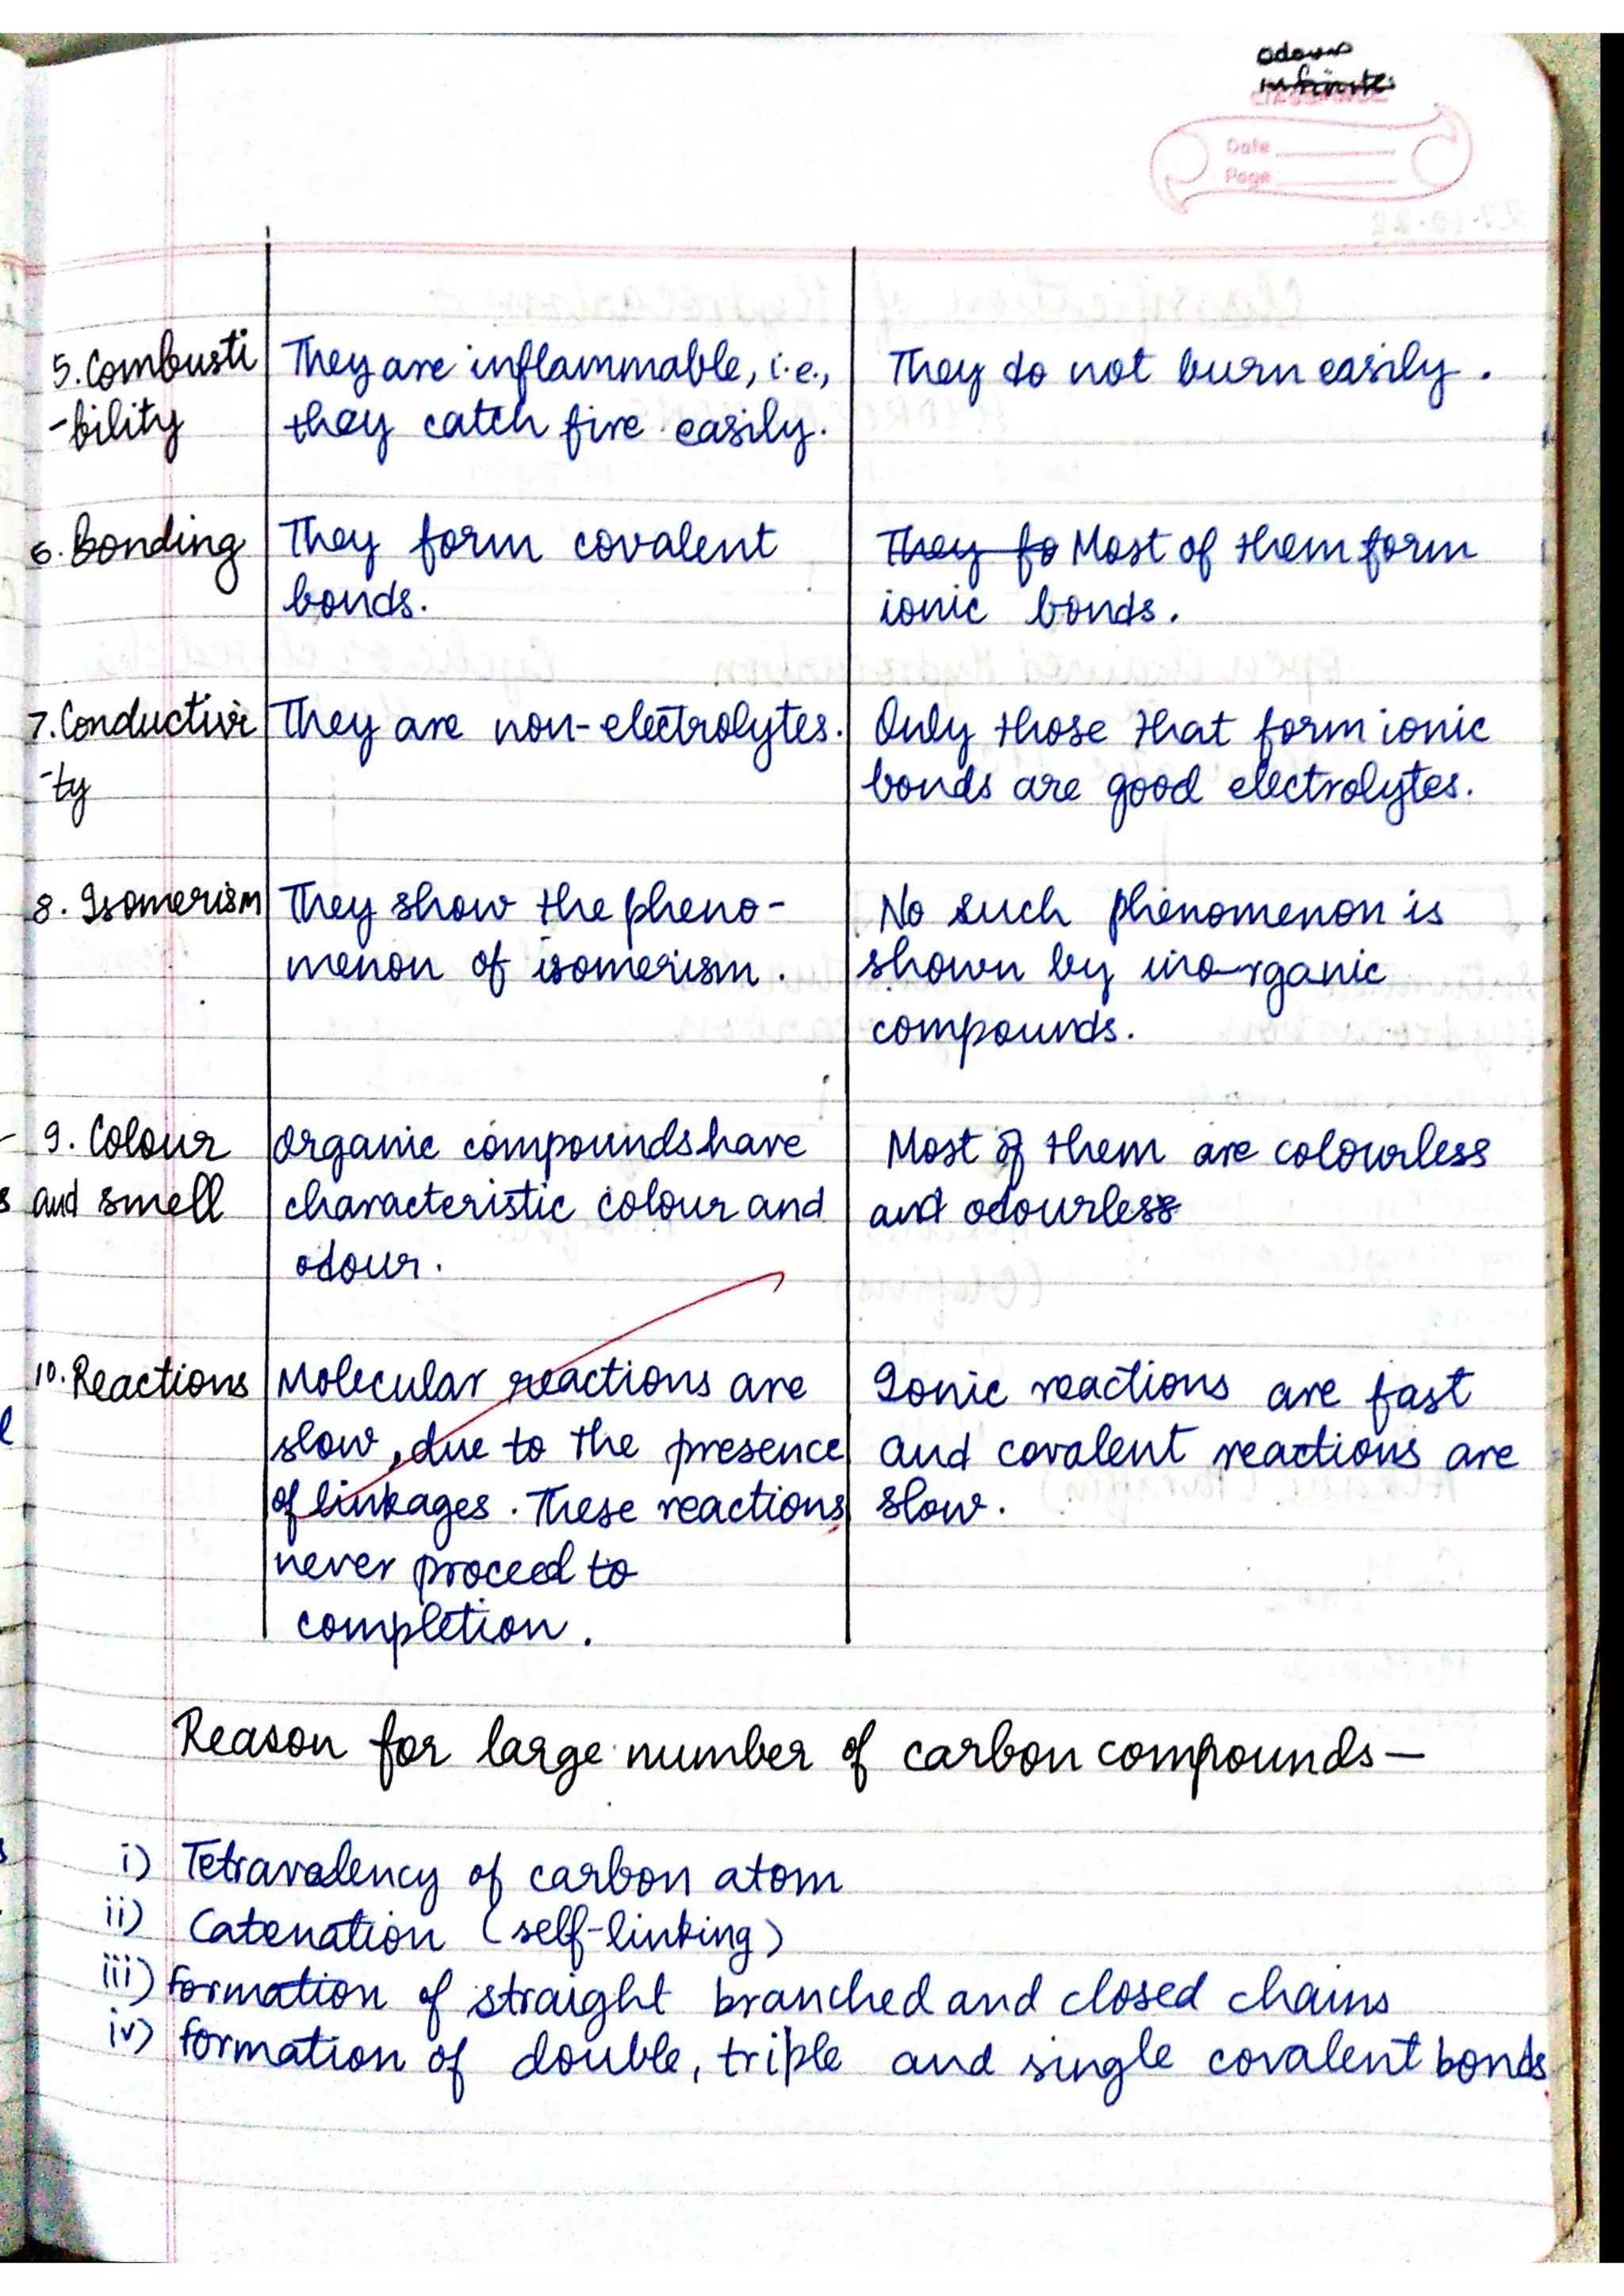 odour
Date
Page
5. Combusti They are inflammable, i.e., They do not burn easily.
-bility they catch fire easily.
6. Bonding They form covalent They fo Most of them form
bonds. ionic bonds.
7. Conductivi They are non-electrolytes. Only those that form ionic
-ty bonds are good electrolytes.
8. Isomerism They show the pheno- No such phenomenon is
menon of isomerism. shown by ino-rganic
compounds.
9. Colour Organic compounds have Most of them are colourless
and smell characteristic colour and and odourless
odour.
10. Reactions Molecular reactions are Ionic reactions are fast
slow, due to the presence and covalent reactions are
of linkages. These reactions slow.
never proceed to
completion.
Reason for large number of carbon compounds—
i) Tetravalency of carbon atom
ii) Catenation (self-linking)
iii) formation of straight branched and closed chains
iv) formation of double, triple and single covalent bonds